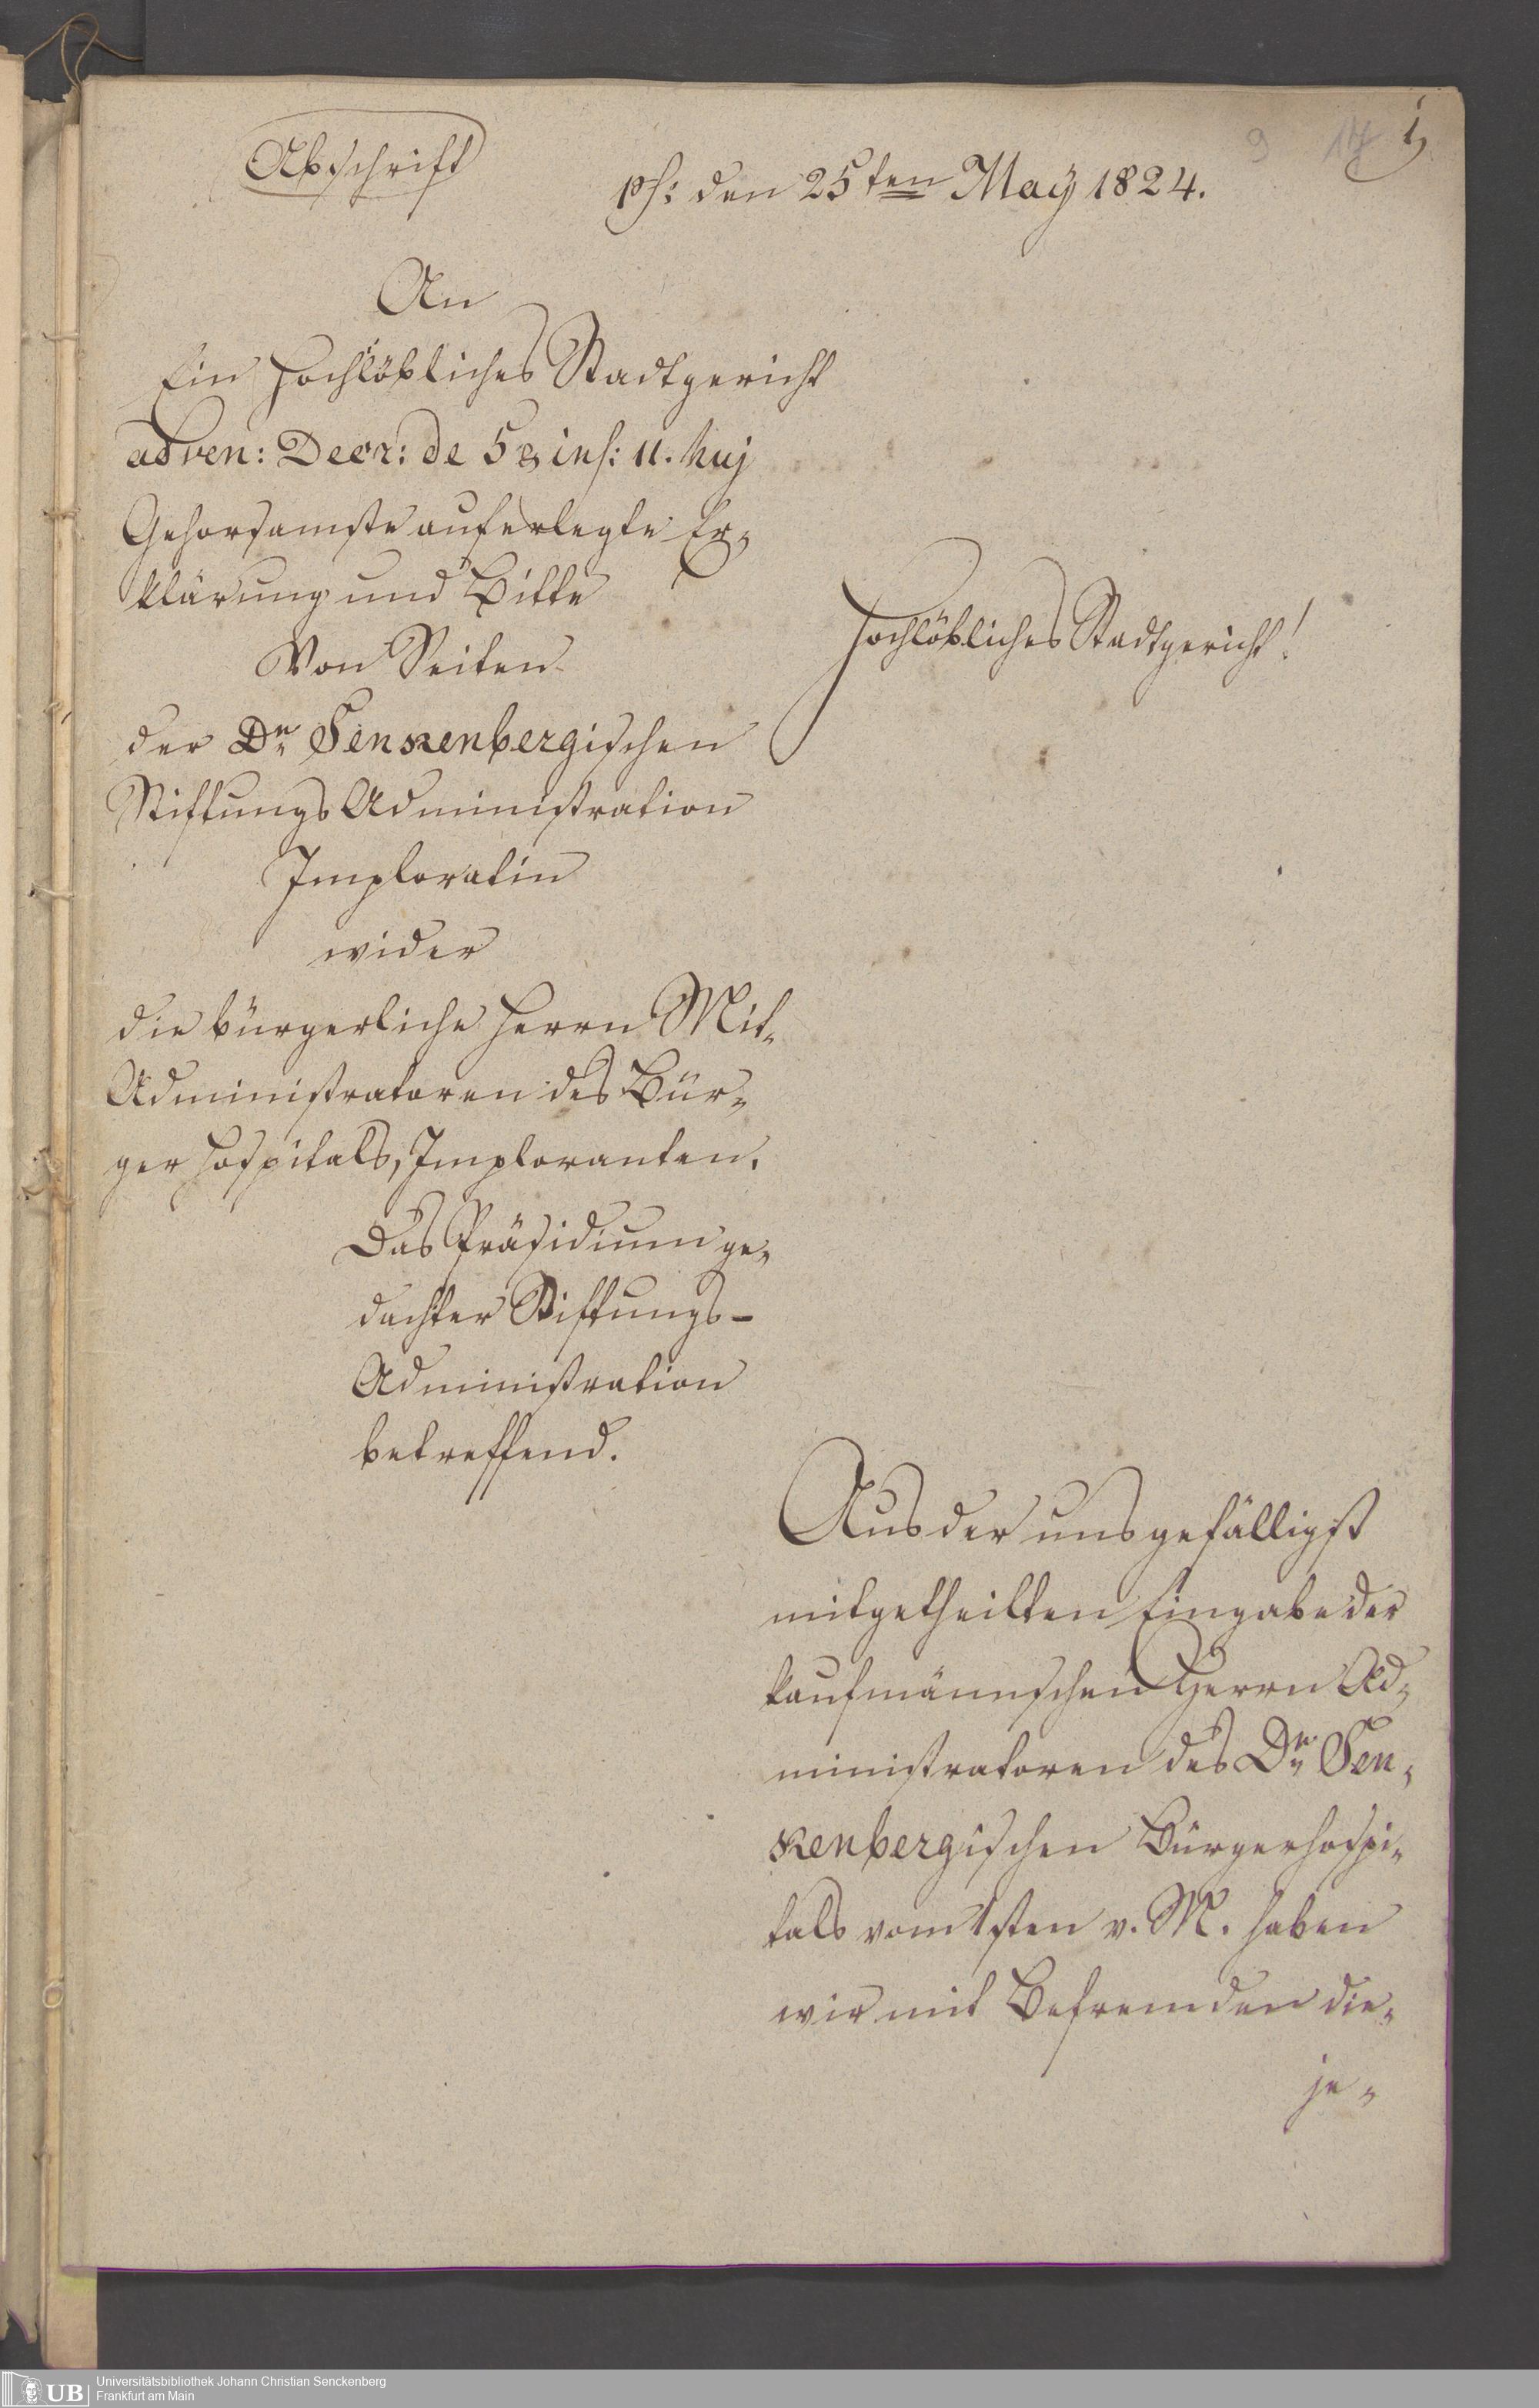 Abschrift
9
ps: den 25ten May 1824.
An
Ein Hochlöbliches Stadtgericht
ad ven: Decr: de 5 & ins: 11. huj
Gehorsamste auferlegte Er-
klärung und Bitte
Von Seiten
der Dr Senkenbergischen
Stiftungs Administration
Imploratin
wider
die bürgerliche Herrn Mit-
Administratoren des Bür-
ger Hospitals, Imploranten.
Das Präsidium ge-
dachter Stiftungs-
Administration
betreffend.
Hochlöbliches Stadtgericht!
Aus der uns gefälligst
mitgetheilten Eingabe der
kaufmännschen Herrn Ad-
ministratoren des Dr Sen-
kenbergischen Bürgerhospi-
tals vom 1sten v. M. haben
wir mit Befremden die-
je-
UB
Universitätsbibliothek Johann Christian Senckenberg
Frankfurt am Main